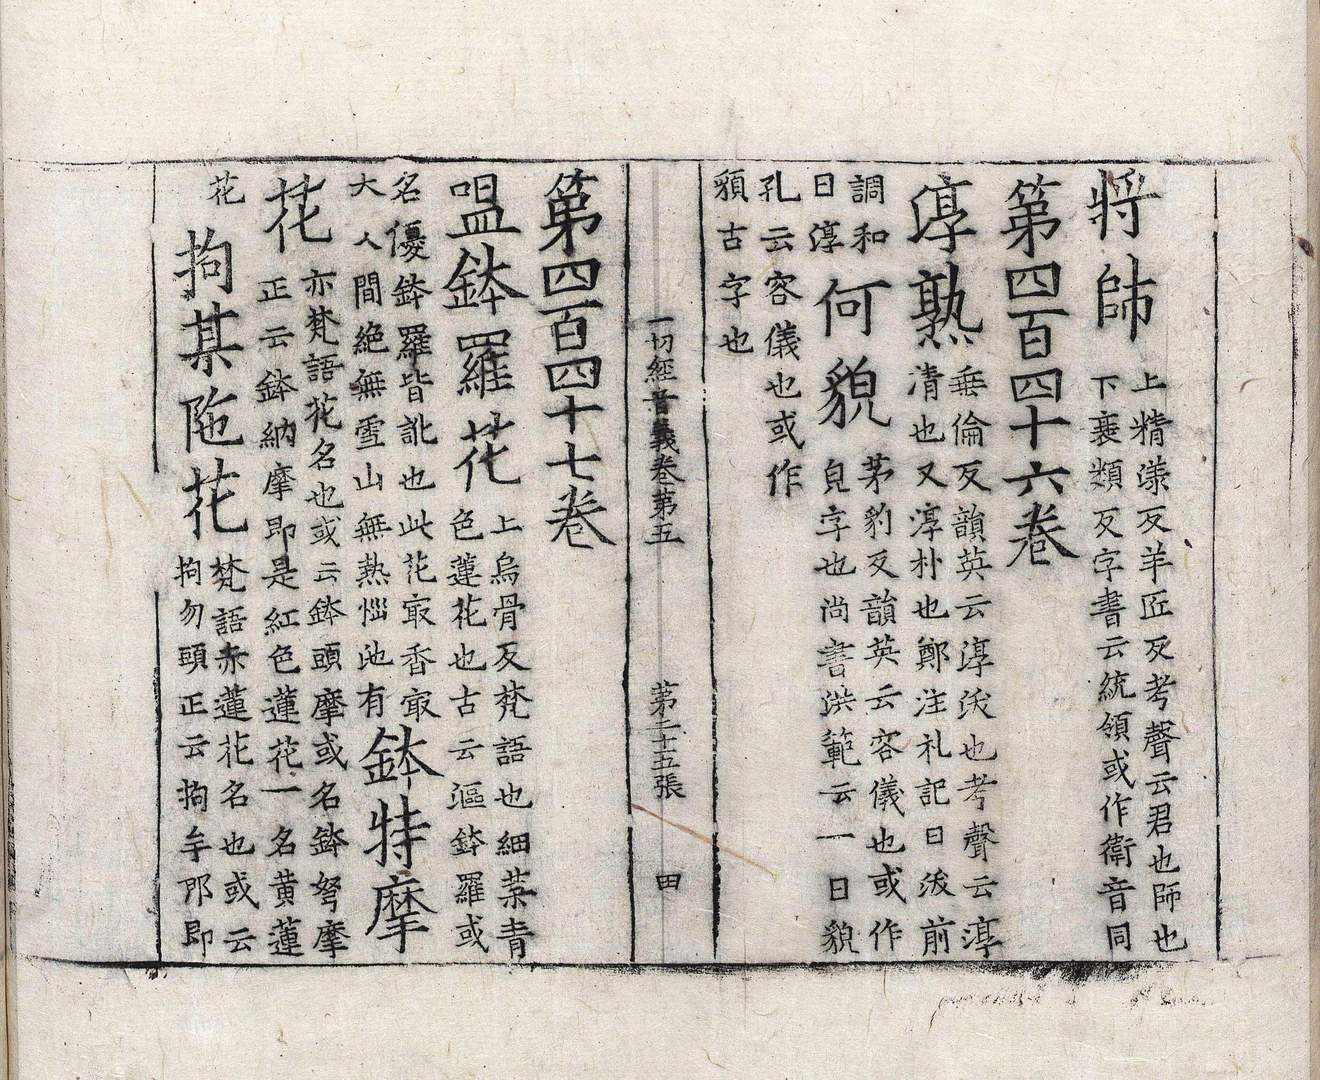 將帥
上精漾反羊匠反考聲云君也師也
下衰類反字書云統領或作衛音同
第四百四十六卷
淳熟
垂倫反韻英云淳沃也考聲云淳
清也又淳朴也鄭注礼記曰沃前
調和
曰淳
何貌
茅豹反韻英云容儀也或作
皃字也尚書洪範云一曰貌
孔云容儀也或作
䫉古字也
一切經音義卷第五 第二十五張 田
第四百四十七卷
嗢鉢羅花
上烏骨反梵語也細葉青
色蓮花也古云漚鉢羅或
名優鉢羅皆訛也此花㝡香㝡
大人間絶無雪山無熱惱池有
鉢特摩
花
亦梵語花名也或云鉢頭摩或名鉢弩摩
正云鉢納摩即是紅色蓮花一名黄蓮
花
拘某陁花
梵語赤蓮花名也或云
拘勿頭正云拘牟那即